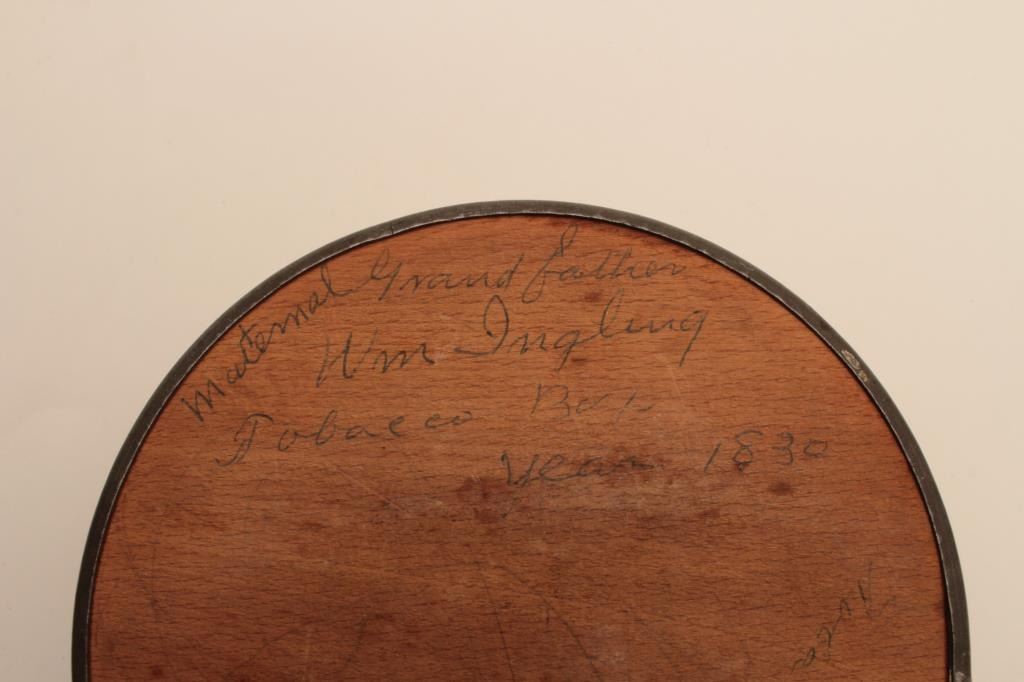 Maternal Grand father
Wm Ingling
Tobacco Box
Year 1830